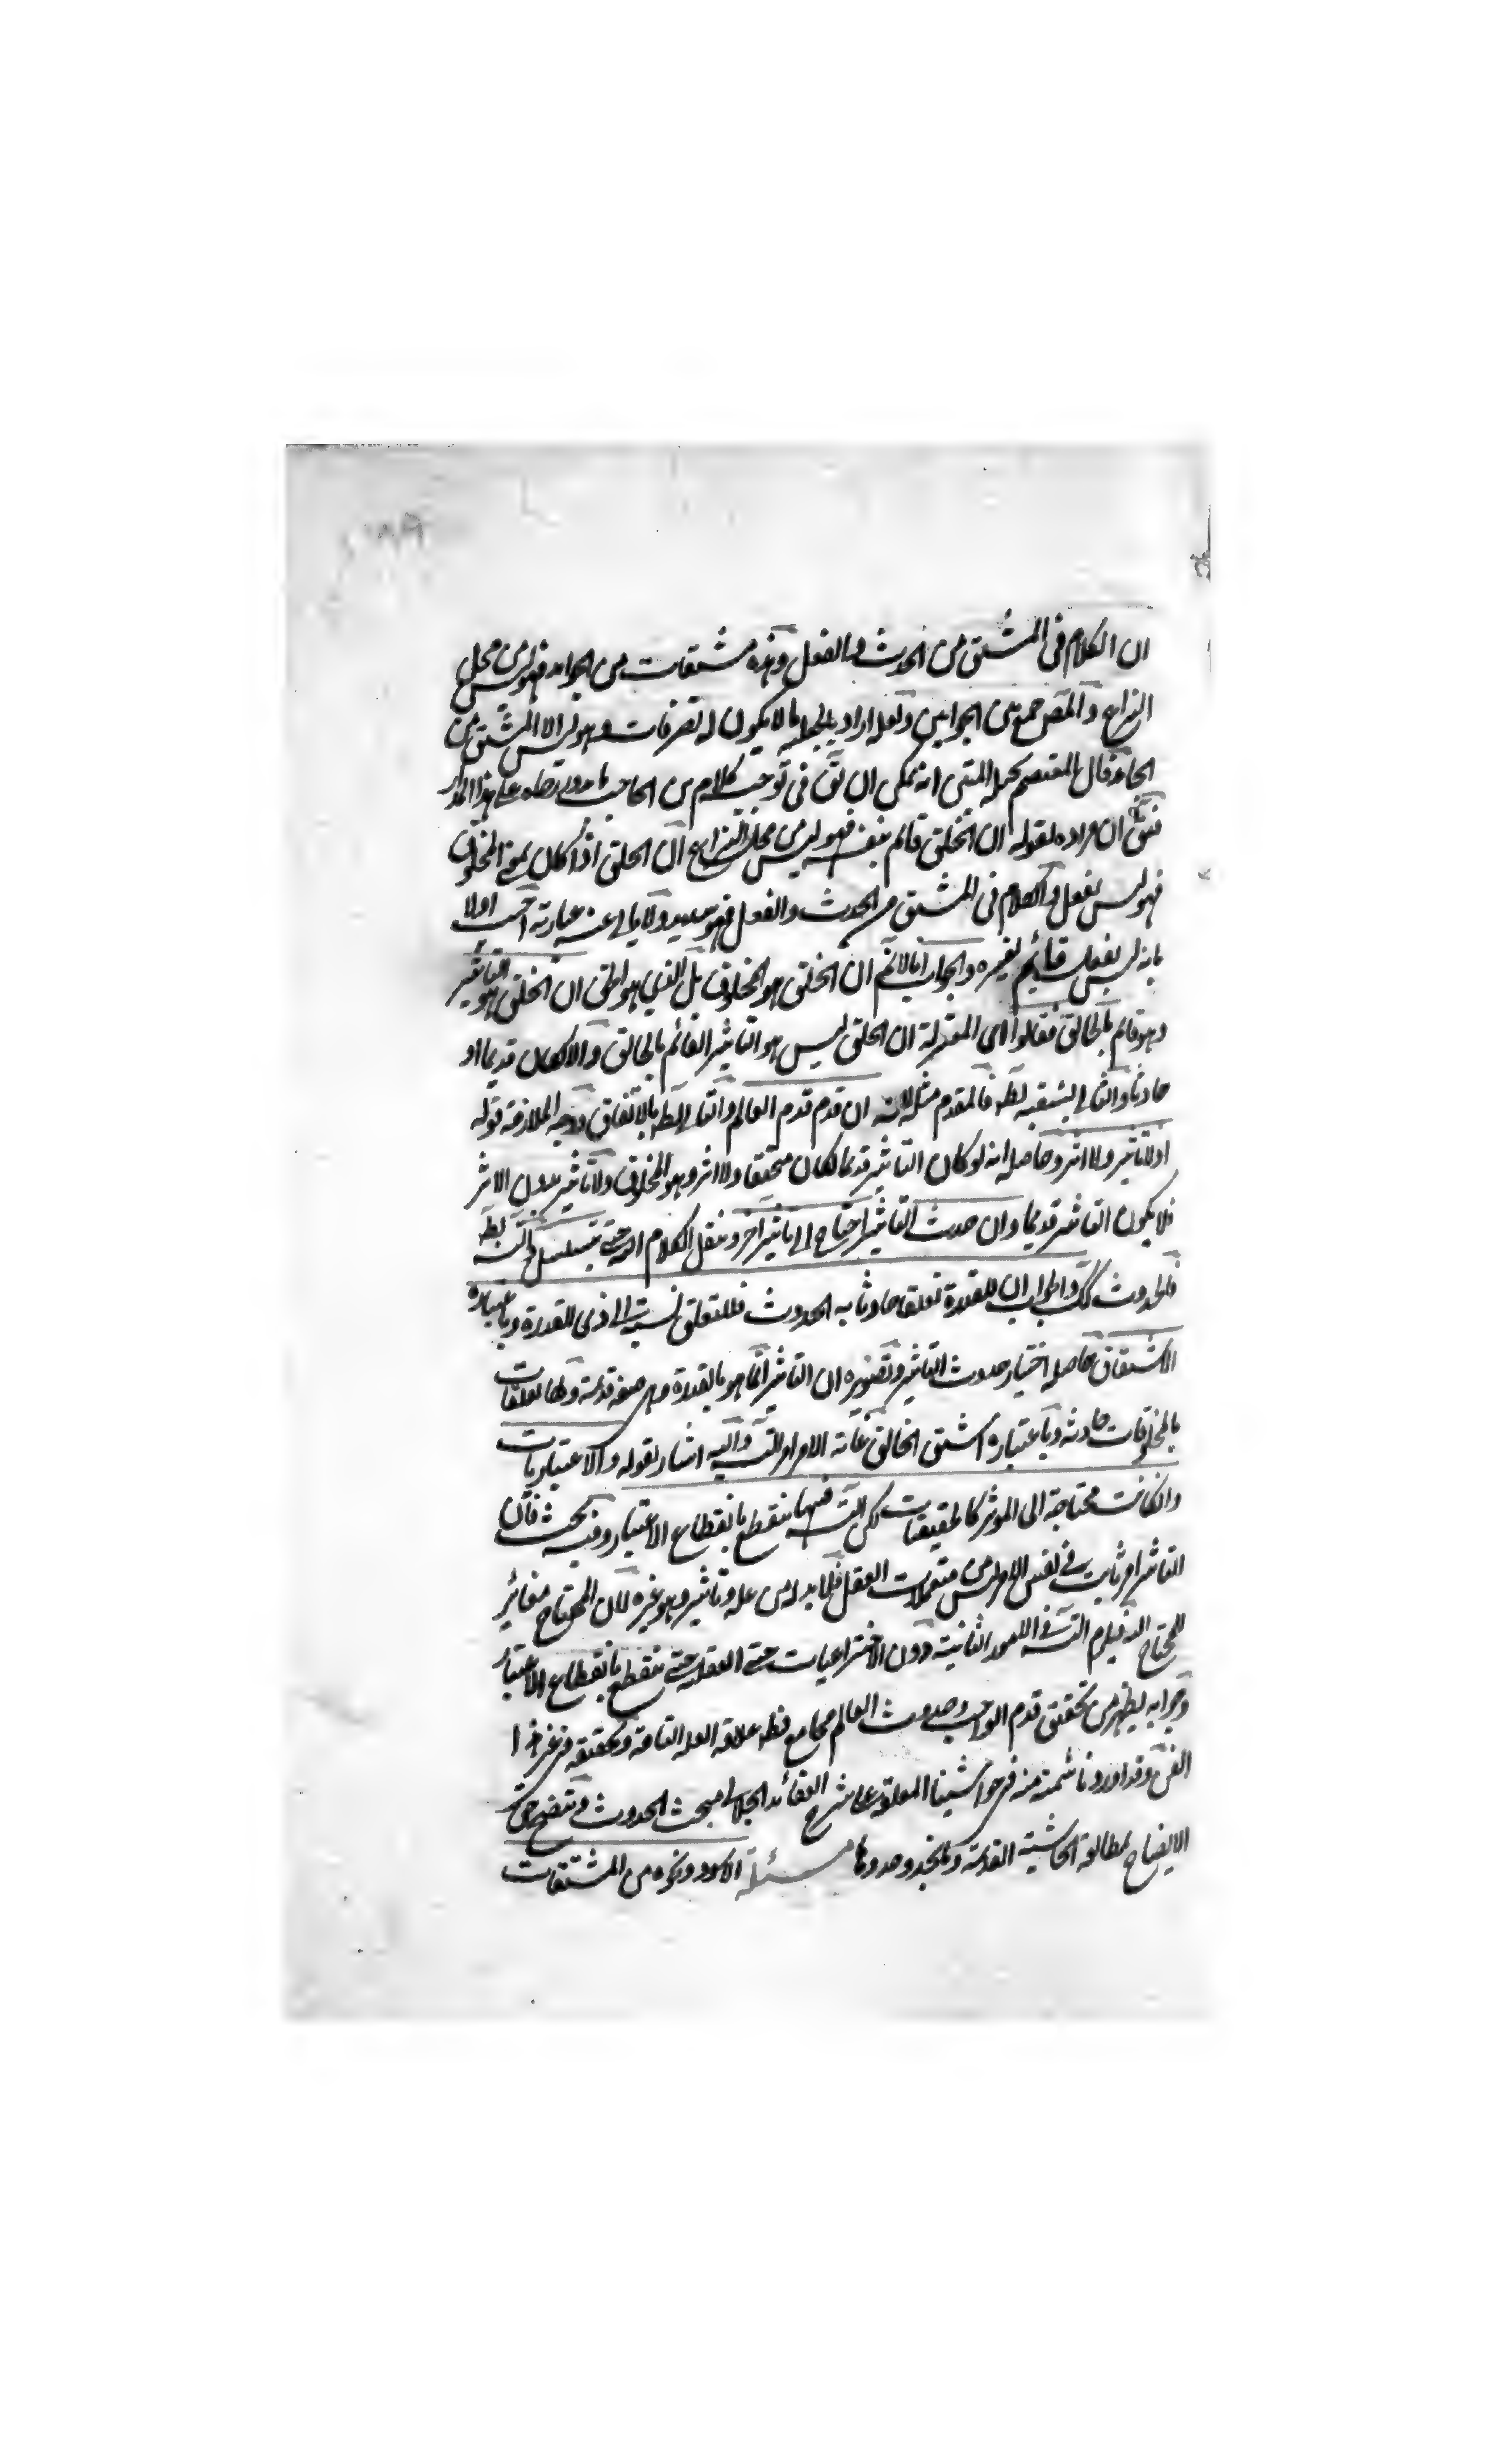 ان الكلام فى المشتق من الحدث والفعل وهذه مشتقات من الجوامد فهو ليس من محل
النزاع والمص جمع بين الجوابين ولعله اراد بالجملة ما لا يكون له تصرفات وهو ليس الا المشتق من
الجامد قال المعتصم بحبله المتين انه يمكن ان يق فى توجيه كلام بن الحاجب على هذا
فيق ان مراده بقوله ان الخلق قائم بنفسه فهو ليس من محل النزاع ان الخلق اذا كان بمعنى المخلوق
فهو ليس بفعل والكلام فى المشتق من الحدث والفعل فهو سديد ولا يابى عنه عبارته اجيب اولا
بانه ليس بفعل قائم بغيره والجواب انا لا نم ان الخلق هو المخلوق بل الذى هو الحق ان الخلق هو التاثير
وهو قائم بالخالق فقالوا اى المعتزلة ان الخلق ليس هو التاثير القائم بالخالق والا لكان قديما او
حادثا والتالى بشقيه بط فالمقدم مثله لانه ان قدم قدم العالم والتالى بط بالاتفاق ووجه الملازمة قوله
اذ لا تاثير ولا اثر وحاصله انه لو كان التاثير قديما لكان متحققا ولا اثر وهو المخلوق ولا تاثير بدون الاثر
فلا يكون التاثير قديما وان حدث التاثير احتاج الى تاثير اخر وننقل الكلام اليه حتى يتسلسل والتسه بط
فالحدوث كك والجواب ان للقدرة تعلقا حادثا به الحدوث فللتعلق نسبة الى ذى القدرة وباعتباره
الاشتقاق حاصله اختيار حدوث التاثير وتصويره ان التاثير انما هو بالقدرة وهى صفة قديمة ولها تعلقات
بالمخلوقات حادثة وباعتباره اشتق الخالق غاية الامر امر التسه واليه اشار بقوله والاعتباريات
وان كانت محتاجة الى المؤثر كالحقيقيات لكن التسه فيها ينقطع بانقطاع الاعتبار وفيه بحث فان
التاثير امر ثابت فى نفس الامر ليس من متعملات العقل فلا بد له من علة وتاثير وهو غيره لان المحتاج مغائر
للمحتاج اليه فيلزم التسه فى الامور الثانية دون الاختراعيات حتى العقلية حتى ينقطع بانقطاع الاعتبار
وجوابه يظهر من تحقيق قدم الواجب وحدوث العالم مجامع علاقة العلة التامة وتحقيقه فى غير هذا
الفن وقد اوردنا شمة منه فى حواشينا المعلقة على شرح العقائد الجلالى مبحث الحدوث ويتضح حق
الايضاح بمطالعة الحاشية القديمة والجديدة مسئلة الاسود ونحوه من المشتقات